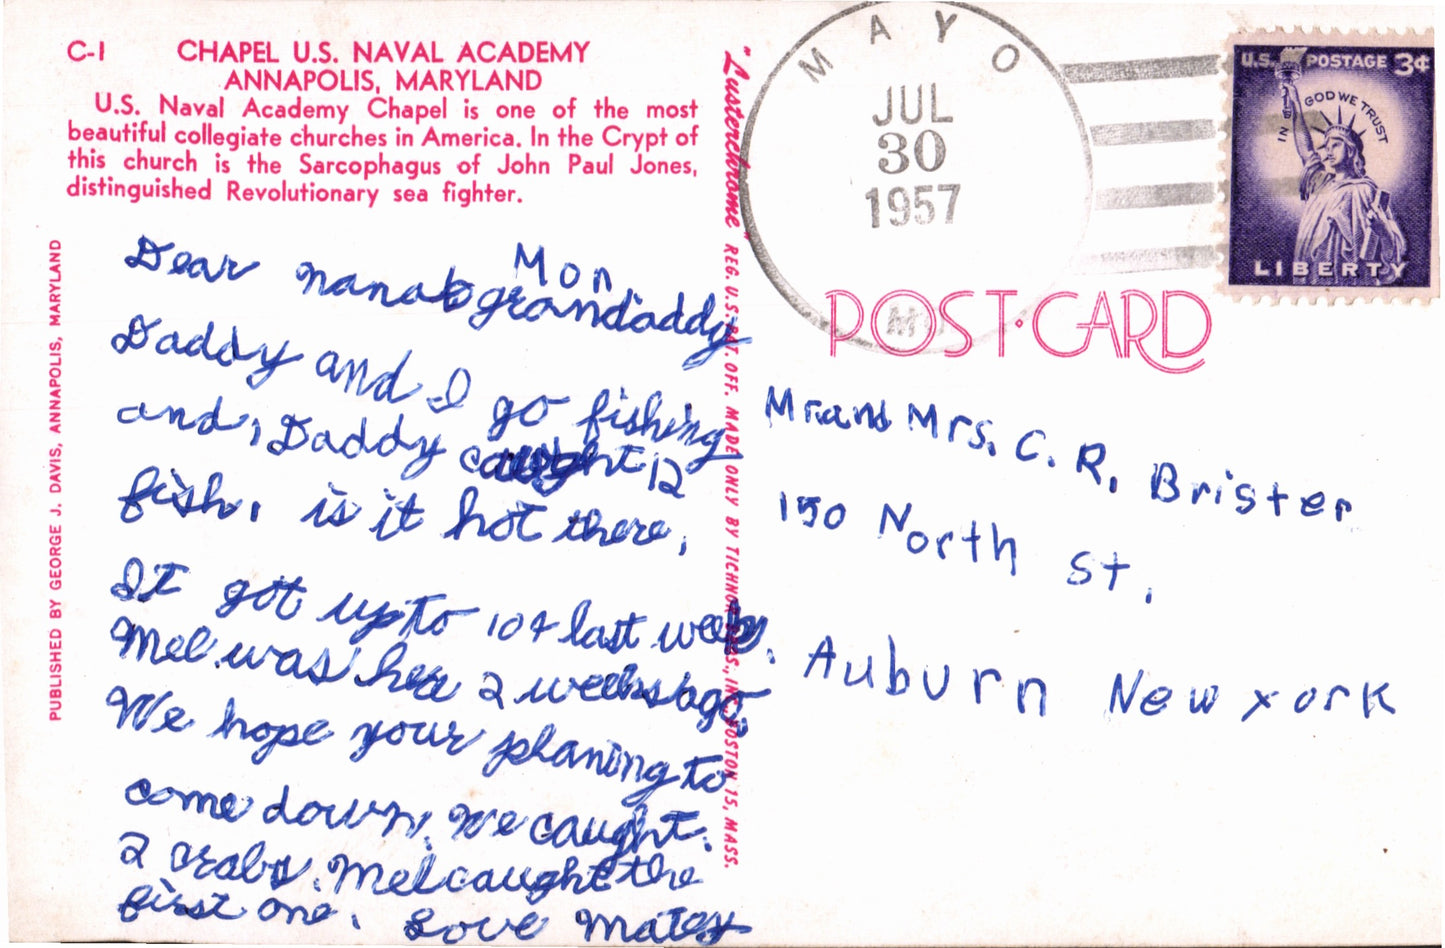 C-1 CHAPEL U.S. NAVAL ACADEMY
ANNAPOLIS, MARYLAND
U.S. Naval Academy Chapel is one of the most
beautiful collegiate churches in America. In the Crypt of
this church is the Sarcophagus of John Paul Jones,
distinguished Revolutionary sea fighter.
PUBLISHED BY GEORGE J. DAVIS, ANNAPOLIS, MARYLAND
Mon.
Dear nana & grandaddy
Daddy and I go fishing
and, Daddy caught 12
fish. is it hot there.
It got up to 104 last week.
Mel was here 2 weeks ago.
We hope your planing to
come down. We caught.
2 crabs. Mel caught the
first one. Love Matey
"Lusterchrome" REG. U.S. PAT. OFF. MADE ONLY BY TICHNOR BROS., INC., BOSTON 15, MASS.
MAYO
JUL
30
1957
MD
U.S. POSTAGE 3¢
IN GOD WE TRUST
LIBERTY
POST·CARD
Mr. and Mrs. C. R. Brister
150 North st.
Auburn New york